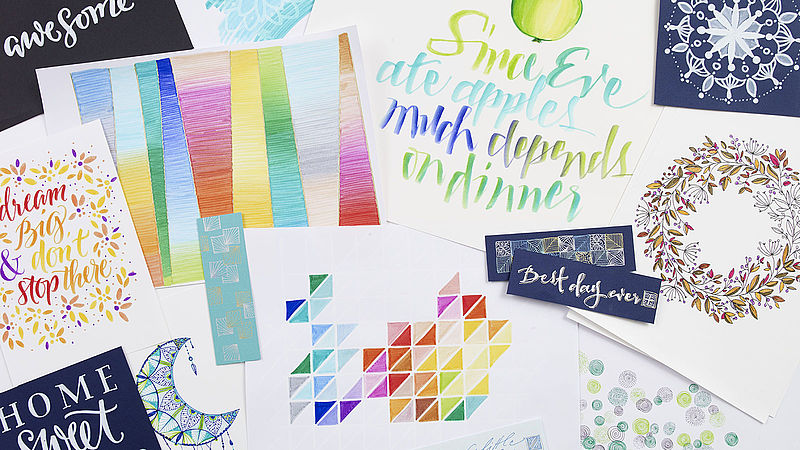 awesome
Since Eve
ate apples
much depends
on dinner
dream
Big
& don't
stop there
Best day ever
HOME
sweet
little